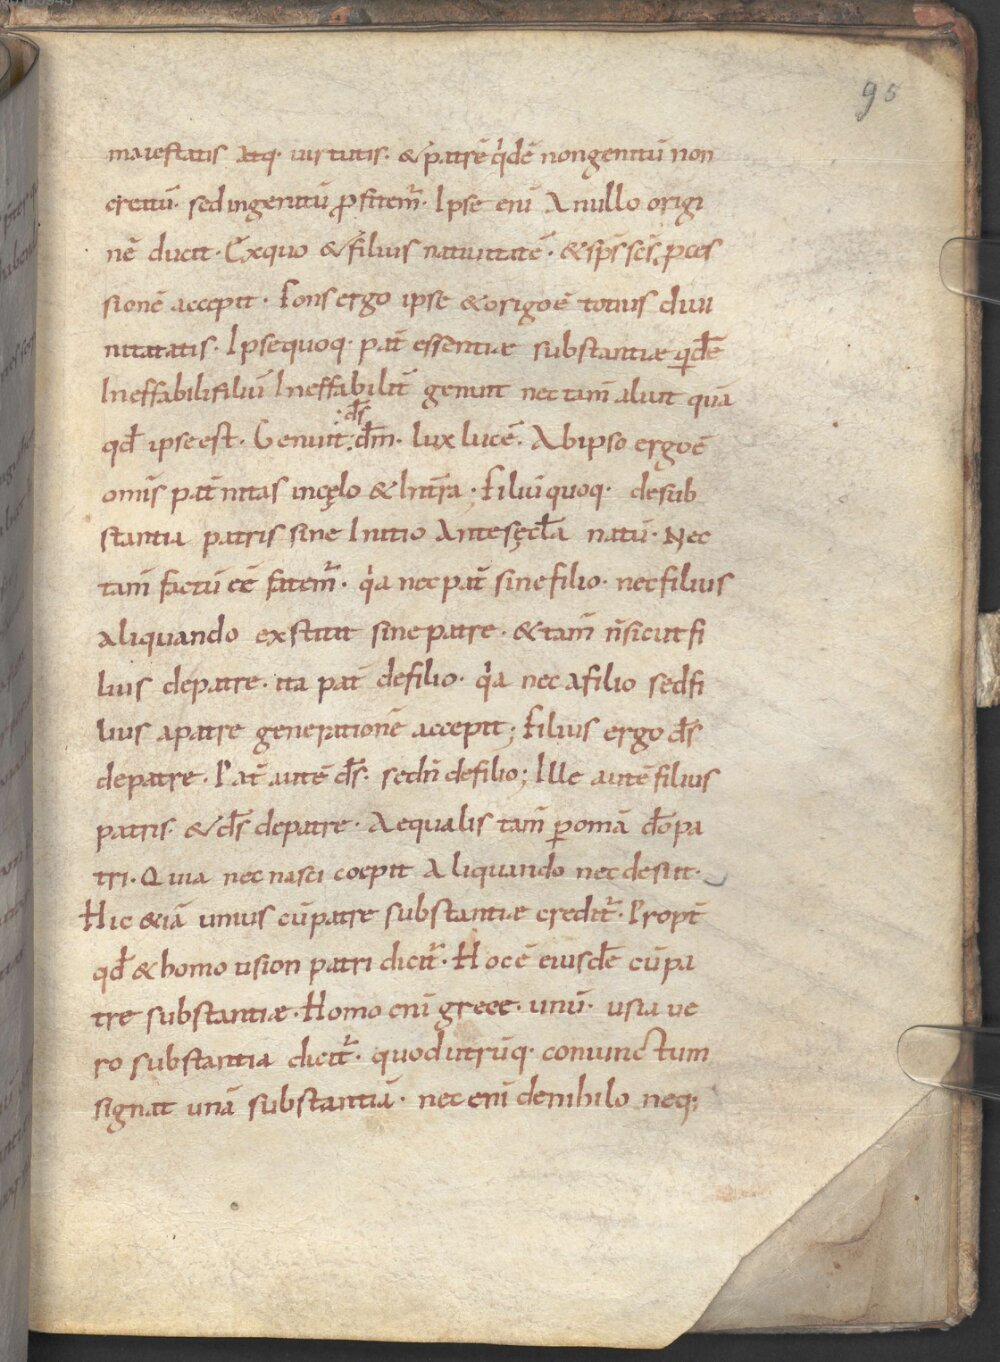 95
maiestatis atq· uirtutis· & patrē q̇dē non genitū non
creatū· sed ingenitū ꝓfitem̄· Ipse eni A nullo origi
nē ducit· Ex quo & filius natiuitatē· & sp̄s sc̄s ꝓces
sionē accepit· Fons ergo ipse & origo ē totius diui
nitatatis· Ipse quoq· pat̄ essentiæ substantiæ qđē
Ineffabili filiū Ineffabilit̄ genuit nec tam̄ aliut quā
qđ ipse est· Genuit :ds̄ dm̄· lux lucē· Ab ipso ergo ē
omīs pat̄nitas in cęlo & In t̄ra· Filiū quoq· de sub
stantia patris sine Initio Ante sęcl̄a natū· Nec
tam̄ factū eē fatem̄· q̇a nec pat̄ sine filio· nec filius
aliquando exstitit sine patre· & tam̄ n̄ sicut fi
lius de patre· ita pat̄ de filio· q̇a nec a filio sed fi
lius a patre generationē accepit; Filius ergo ds̄
de patre· Pat̄ autē ds̄· sed n̄ de filio; Ille autē filius
patris· & ds̄ de patre· Aequalis tam̄ ꝑ omā dō pa
tri· Quia nec nasci coepit Aliquando nec desiit·
Hic & iā unius cū patre substantiæ credit̄· Propt̄
qđ & homo usion patri dicit̄· Hoc ē eiusdē cū pa
tre substantiæ· Homo enī grece· unū· usia ue
ro substantia dicit̄· quod utrūq· coniunctum
signat unā substantiā· nec enī de nihilo neq;